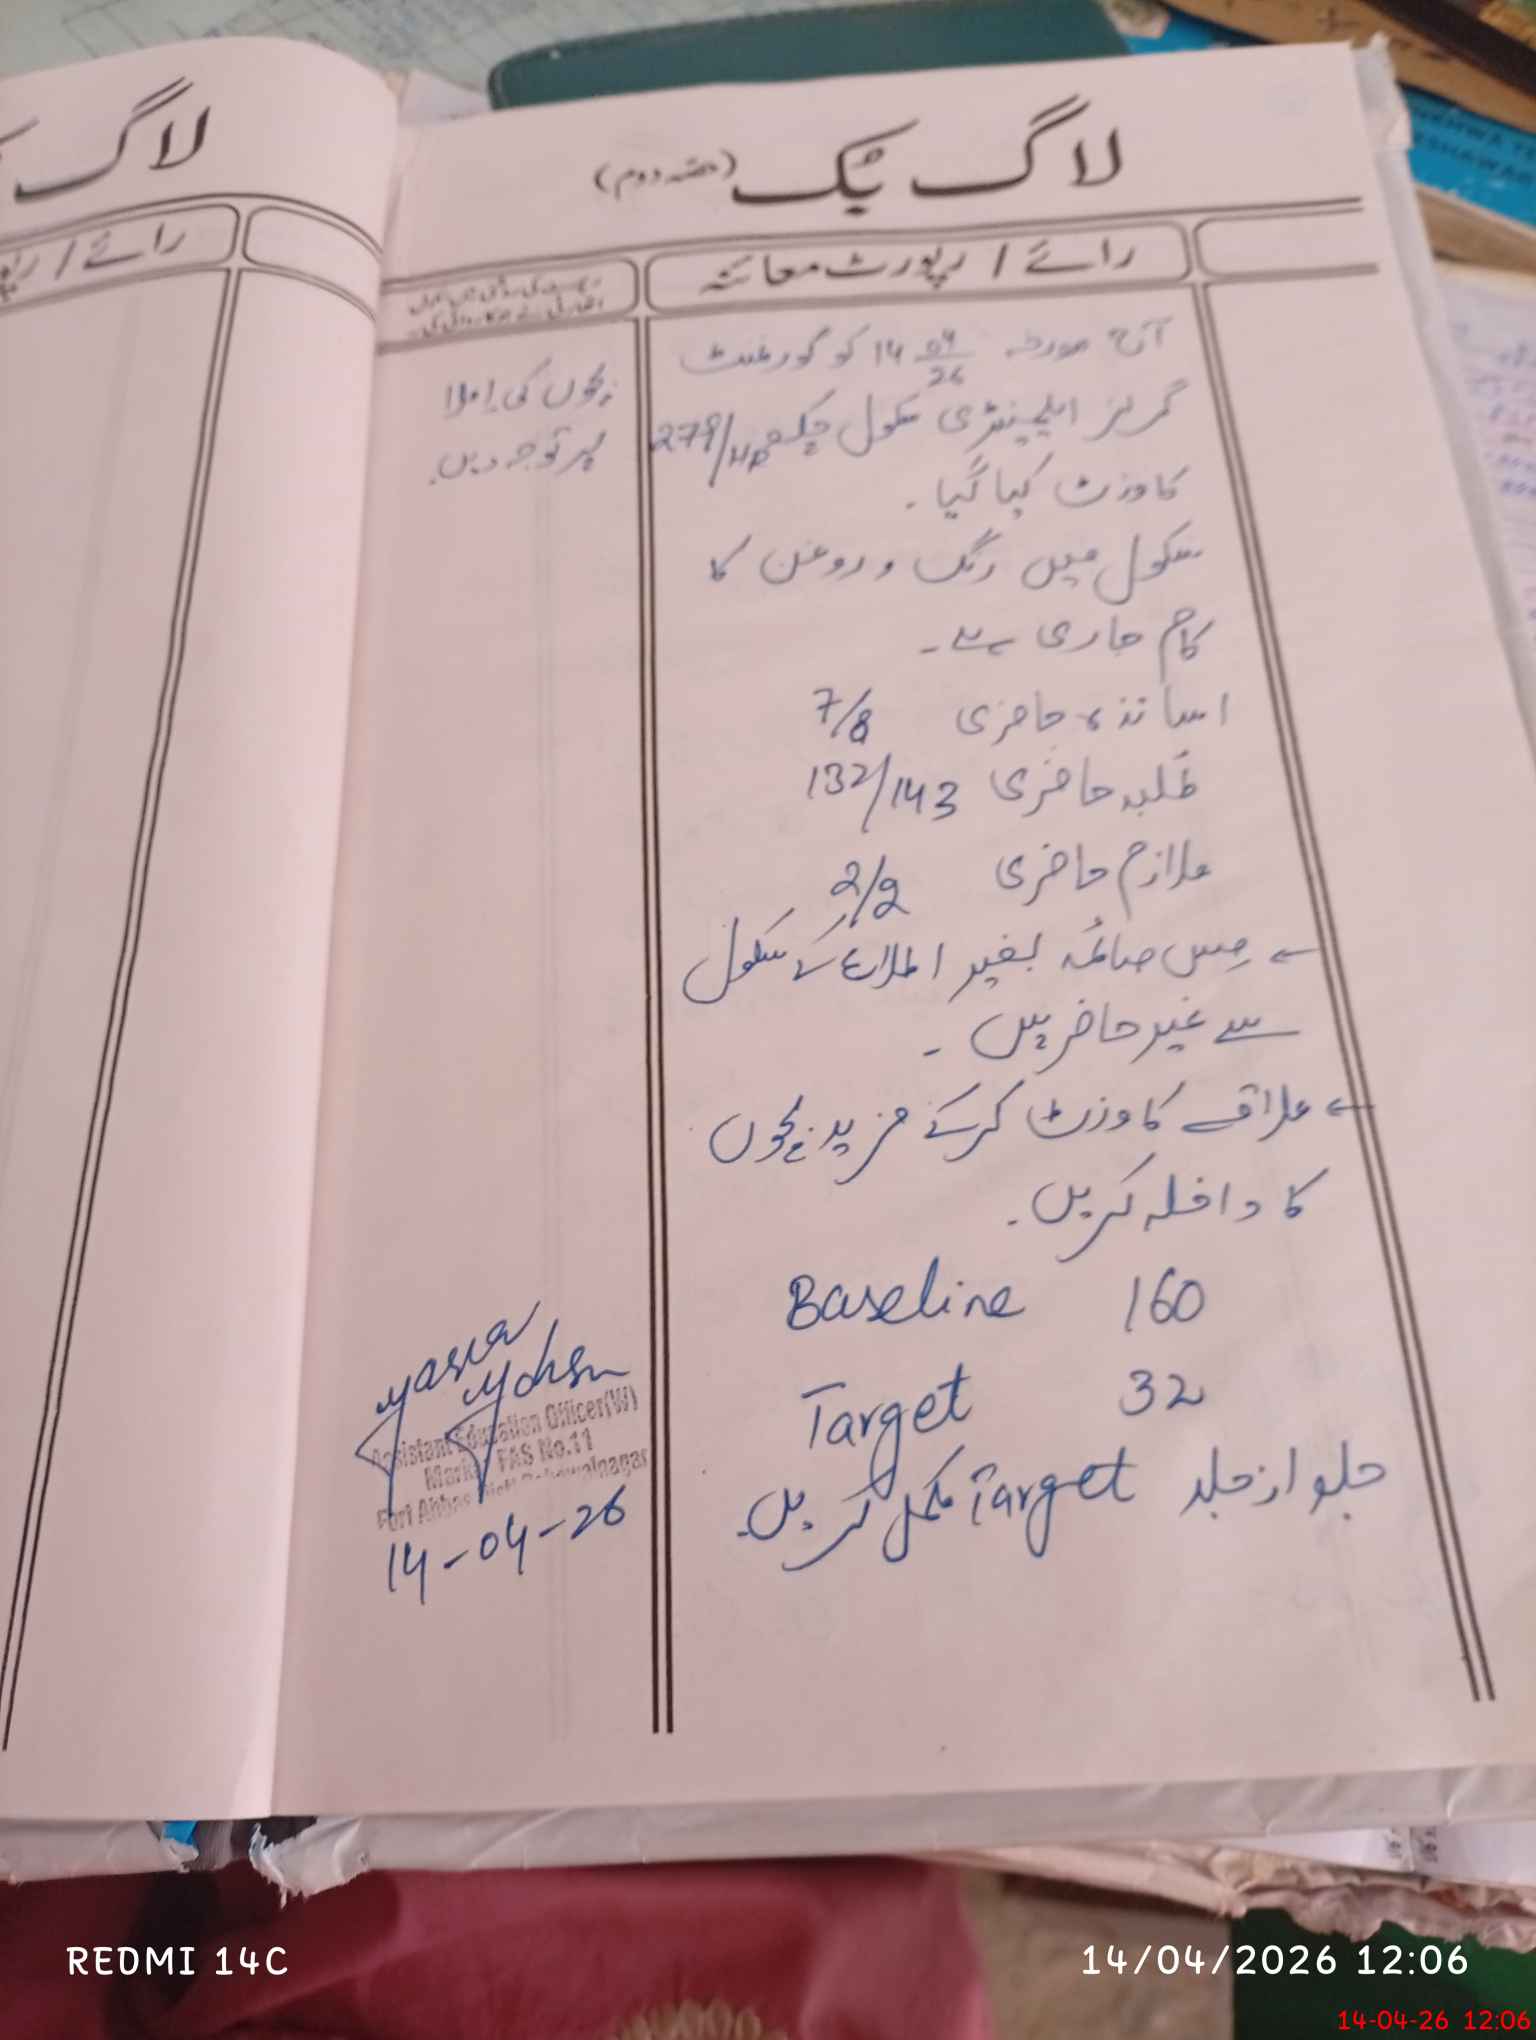 لاگ بک (حصہ دوم)
رائے / رپورٹ معائنہ
آج مورخہ 14 04/26 کو گورنمنٹ
گرلز ایلیمنٹری سکول چک 279/HR
کا وزٹ کیا گیا۔
سکول میں رنگ و روغن کا
کام جاری ہے۔
اساتذہ حاضری 7/8
طلبہ حاضری 132/143
ملازم حاضری 2/2
← مِس صائمہ بغیر اطلاع کے سکول
سے غیر حاضر ہیں۔
← علاقے کا وزٹ کرکے مزید بچوں
کا داخلہ کریں۔
Baseline 160
Target 32
جلد از جلد Target مکمل کریں۔
بچوں کی املا
پر توجہ دیں۔
Assistant Education Officer(W)
FAS No.11
Fort Abbas Bahawalnagar
14-04-26
لاگ
رائے /
REDMI 14C
14/04/2026 12:06
14-04-26 12:06